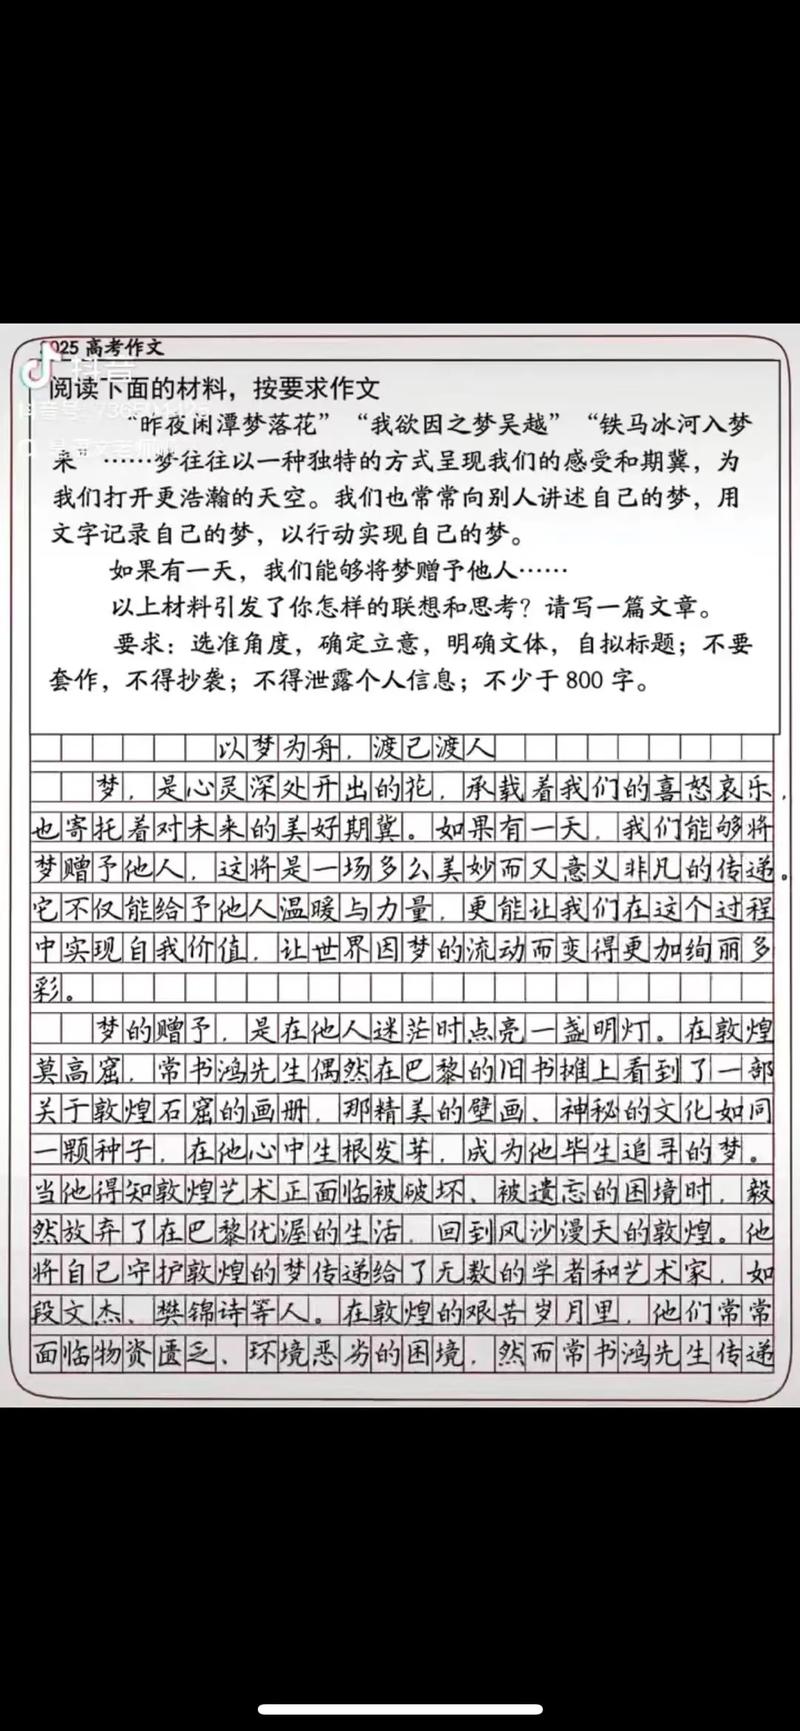 2025 高考作文
抖音
阅读下面的材料，按要求作文
抖音号：
“昨夜闲潭梦落花”“我欲因之梦吴越”“铁马冰河入梦
来”……梦往往以一种独特的方式呈现我们的感受和期冀，为
我们打开更浩瀚的天空。我们也常常向别人讲述自己的梦，用
文字记录自己的梦，以行动实现自己的梦。
如果有一天，我们能够将梦赠予他人……
以上材料引发了你怎样的联想和思考？请写一篇文章。
要求：选准角度，确定立意，明确文体，自拟标题；不要
套作，不得抄袭；不得泄露个人信息；不少于 800 字。
以梦为舟，渡己渡人
梦，是心灵深处开出的花，承载着我们的喜怒哀乐，
也寄托着对未来的美好期冀。如果有一天，我们能够将
梦赠予他人，这将是一场多么美妙而又意义非凡的传递。
它不仅能给予他人温暖与力量，更能让我们在这个过程
中实现自我价值，让世界因梦的流动而变得更加绚丽多
彩。
梦的赠予，是在他人迷茫时点亮一盏明灯。在敦煌
莫高窟，常书鸿先生偶然在巴黎的旧书摊上看到了一部
关于敦煌石窟的画册，那精美的壁画、神秘的文化如同
一颗种子，在他心中生根发芽，成为他毕生追寻的梦。
当他得知敦煌艺术正面临被破坏、被遗忘的困境时，毅
然放弃了在巴黎优渥的生活，回到风沙漫天的敦煌。他
将自己守护敦煌的梦传递给了无数的学者和艺术家，如
段文杰、樊锦诗等人。在敦煌的艰苦岁月里，他们常常
面临物资匮乏、环境恶劣的困境，然而常书鸿先生传递